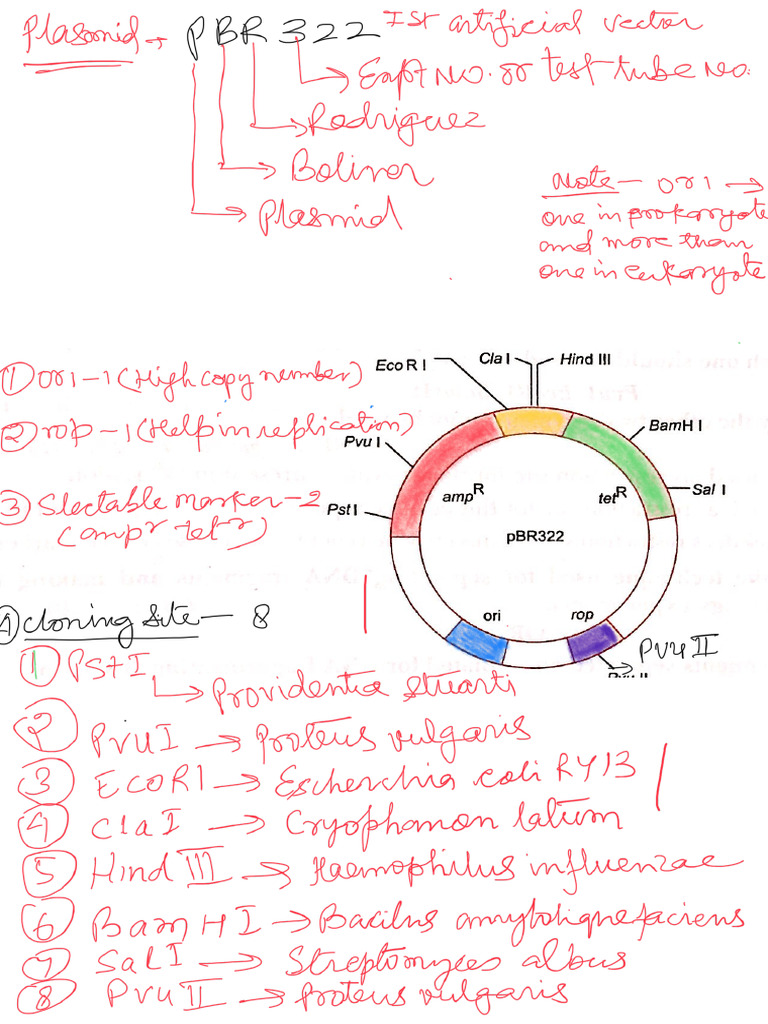 Plasmid → PBR322 Ist artificial vector
Expt No. or test tube No.
Rodriguez
Boliver
Plasmid
Note - ori →
one in prokaryote
and more than
one in eukaryote
① ori-1 (High copy number)
② rop-1 (Help in replication)
③ Slectable marker-2
(ampʳ tetʳ)
EcoR I
Cla I
Hind III
Pvu I
BamH I
Pst I
Sal I
ampᴿ
tetᴿ
pBR322
ori
rop
PVUII
④ cloning site - 8
① PstI
→ Providentia stuarti
② PvuI → Proteus vulgaris
③ ECORI → Escherchia coli RY13
④ ClaI → Cryophanon latum
⑤ Hind III → Haemophilus influenzae
⑥ BamHI → Bacilus amyloliquefaciens
⑦ SalI → Streptomyces albus
⑧ PvuII → Proteus vulgaris